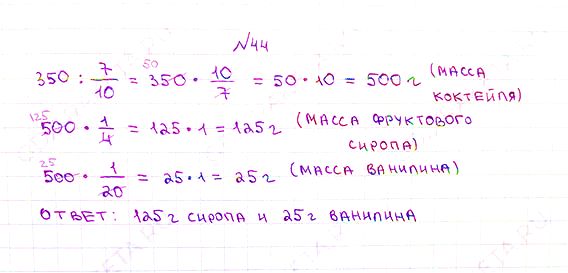 №44
350 : 7/10 = 350 · 10/7 = 50 · 10 = 500 г (МАССА
КОКТЕЙЛЯ)
500 · 1/4 = 125 · 1 = 125 г (МАССА ФРУКТОВОГО
СИРОПА)
500 · 1/20 = 25 · 1 = 25 г (МАССА ВАНИЛИНА)
ОТВЕТ: 125 г СИРОПА И 25 г ВАНИЛИНА